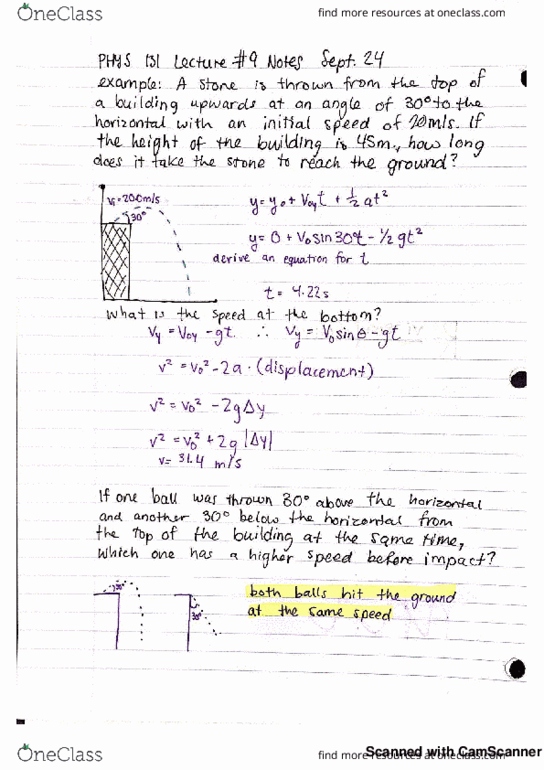 OneClass
find more resources at oneclass.com
PHYS 131 Lecture #9 Notes Sept. 24
example: A stone is thrown from the top of
a building upwards at an angle of 30° to the
horizontal with an initial speed of 20m/s. If
the height of the building is 45m, how long
does it take the stone to reach the ground?
Vi=20.0m/s
30°
y = y0 + V0yt + ½ at²
y = 0 + V0 sin30t - ½ gt²
derive an equation for t
t = 4.22s
What is the speed at the bottom?
Vy = V0y - gt ∴ Vy = V0sinθ - gt
v² = v0² - 2a · (displacement)
v² = v0² - 2gΔy
v² = v0² + 2g|Δy|
v = 31.4 m/s
If one ball was thrown 30° above the horizontal
and another 30° below the horizontal from
the top of the building at the same time,
which one has a higher speed before impact?
30°
30°
both balls hit the ground
at the same speed
OneClass
find more resources at oneclass.com
Scanned with CamScanner